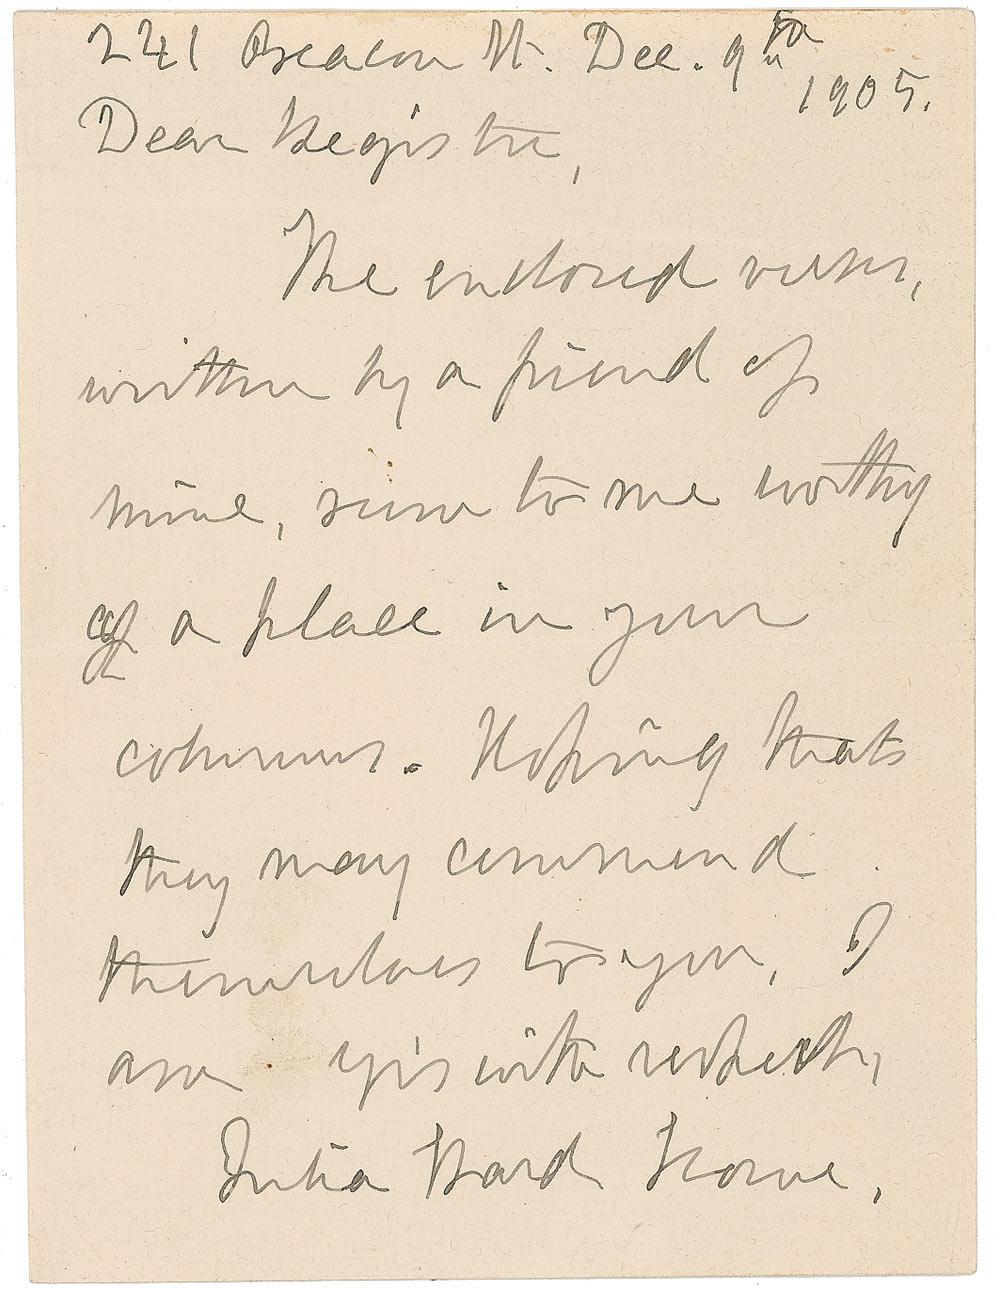 241 Beacon St. Dec. 9th
1905.
Dear Registre,
The enclosed verses,
written by a friend of
mine, seem to me worthy
of a place in your
columns. Hoping that
they may commend
themselves to you, I
am yrs with respect,
Julia Ward Howe,